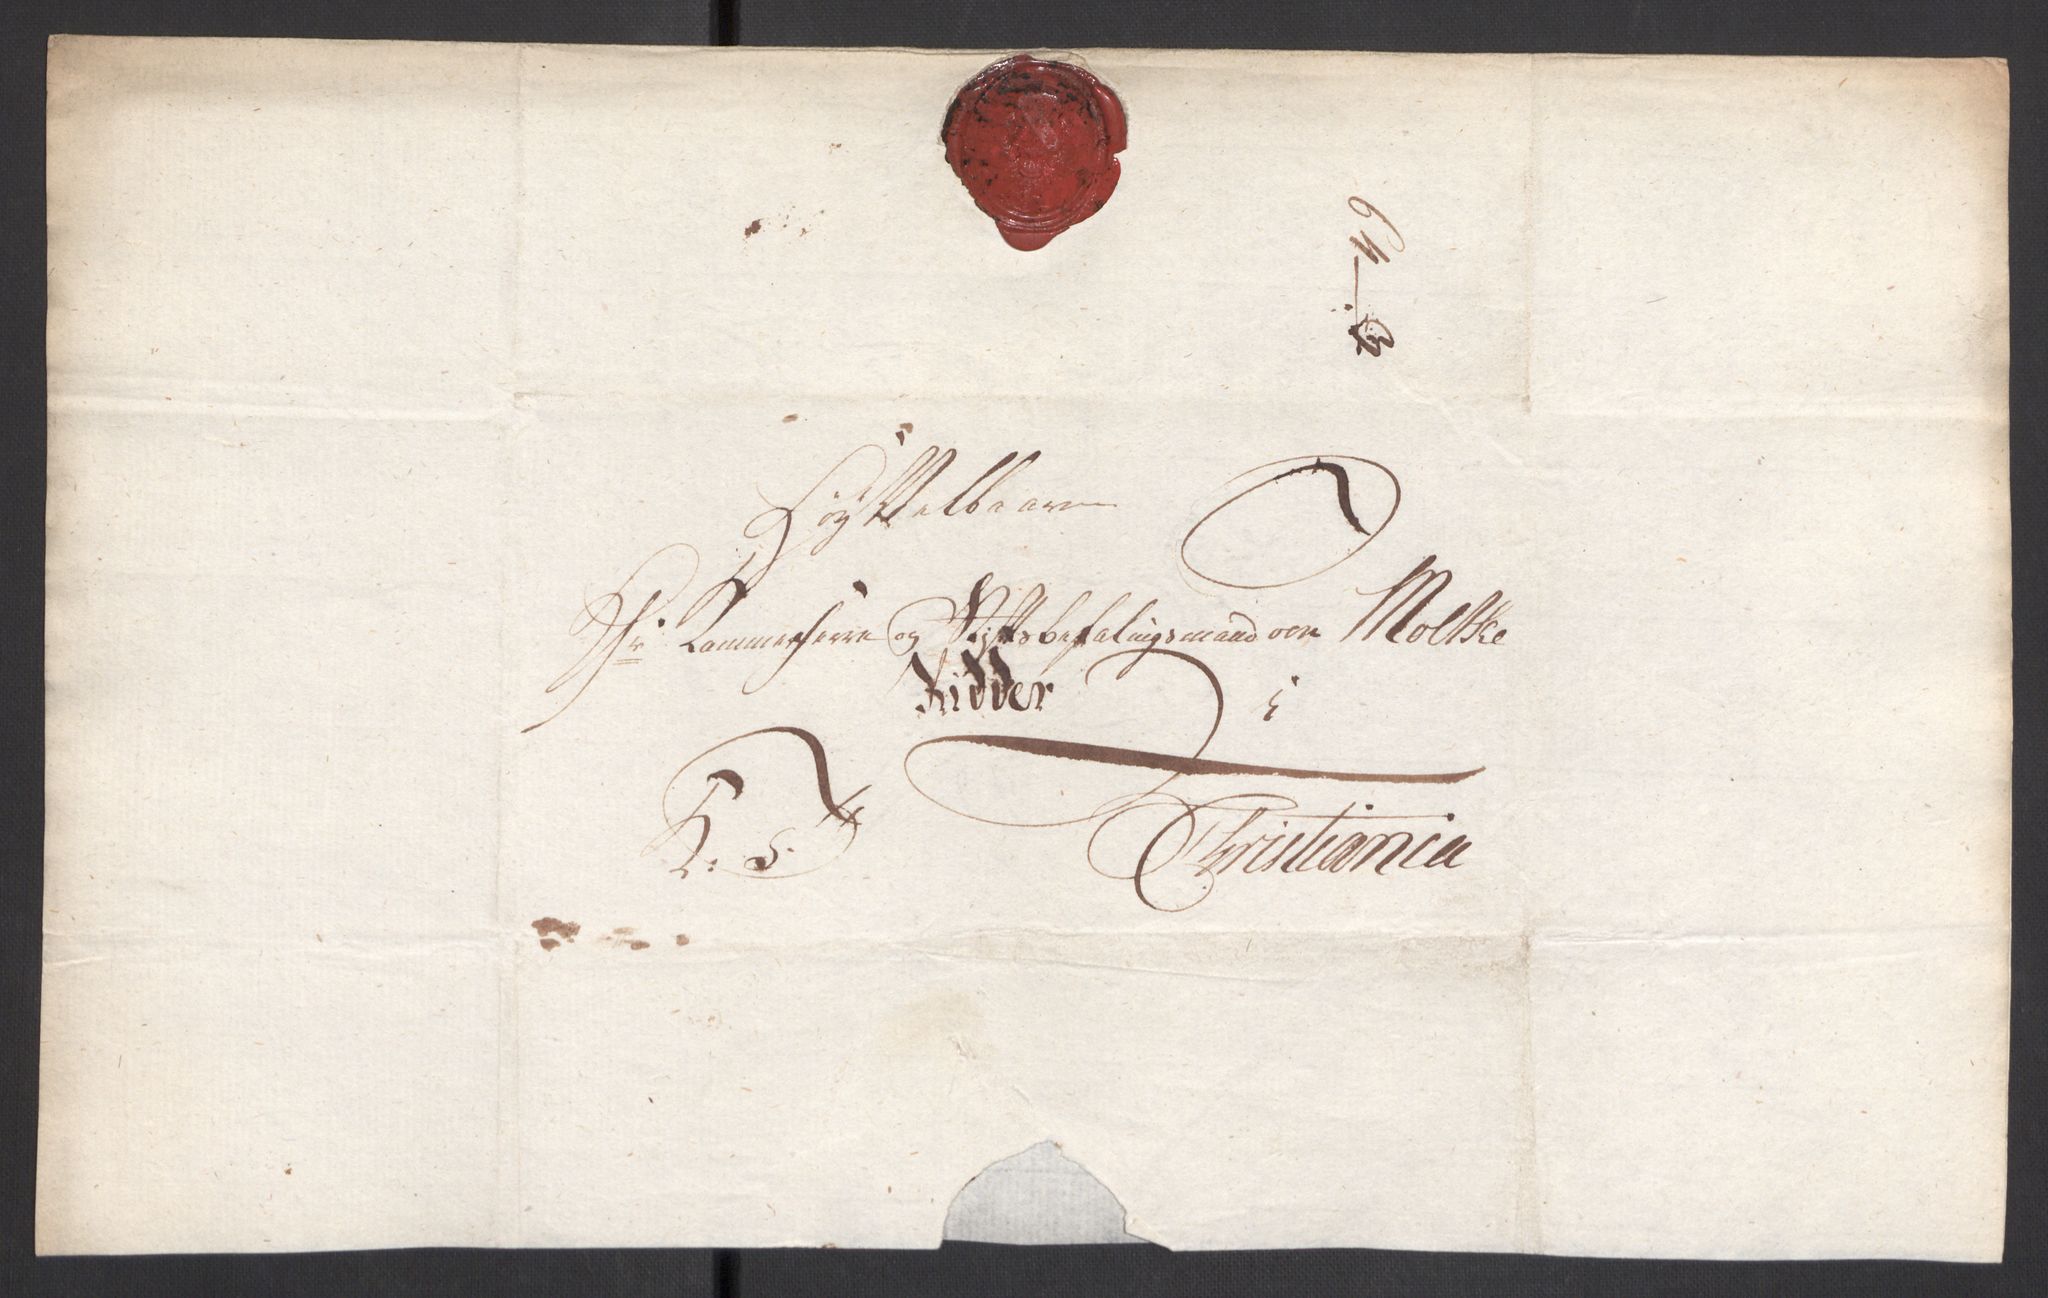 HøyVelbaarne
Hr: Kammerherre og Stiftsbefalingsmand von Moltke
Ridder i
K: S:
Christiania